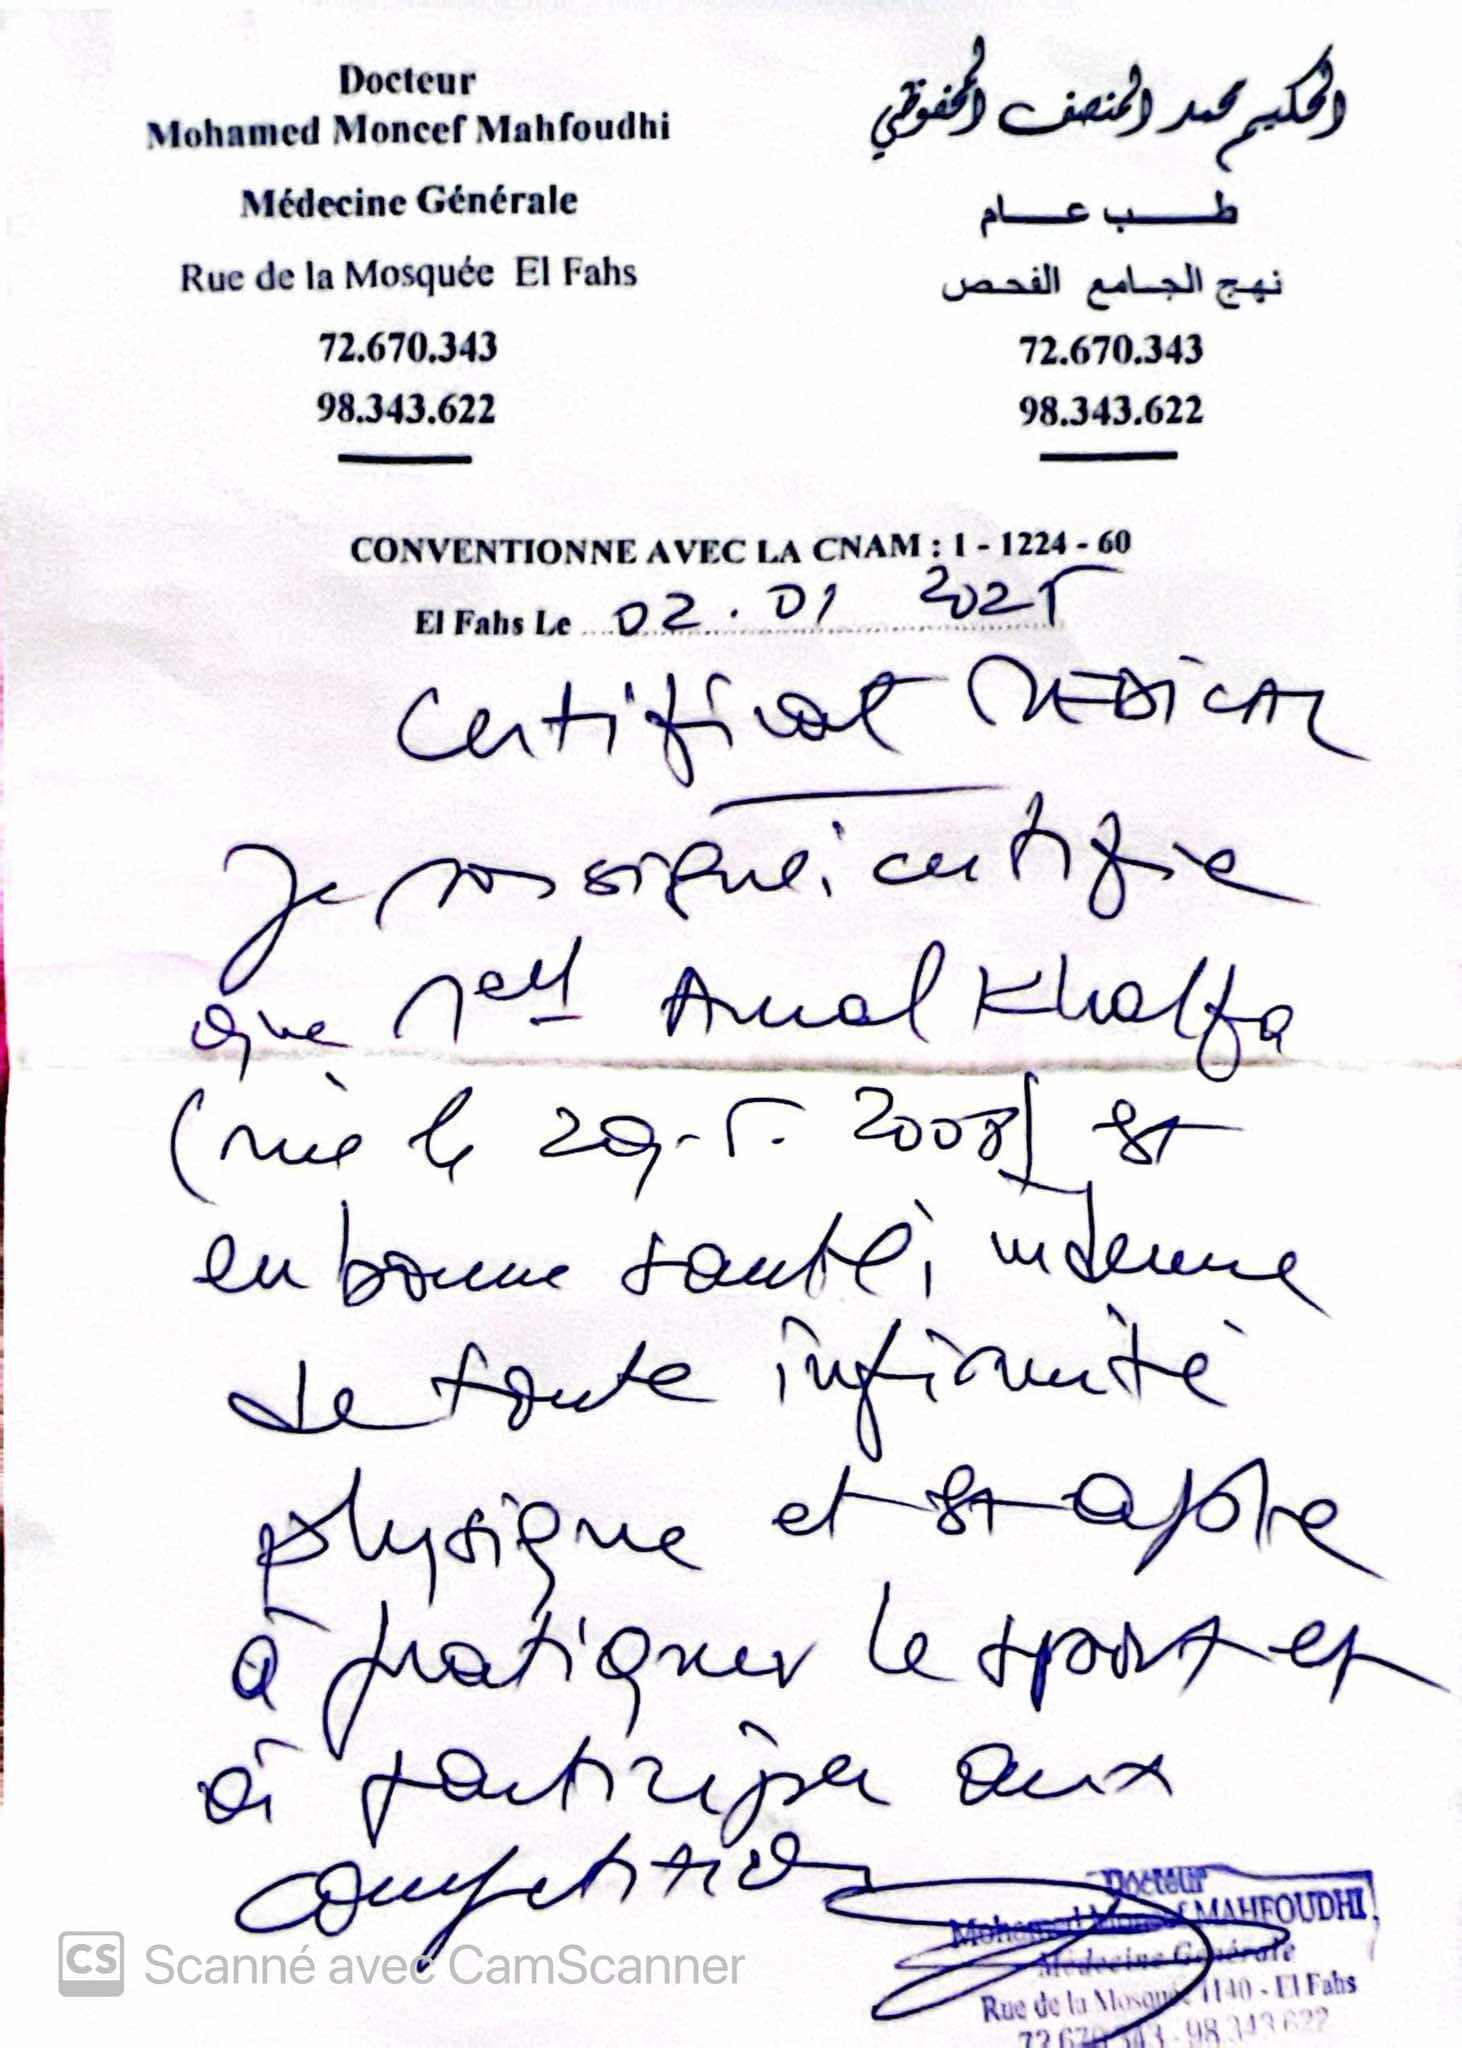 Docteur
Mohamed Moncef Mahfoudhi
Médecine Générale
Rue de la Mosquée El Fahs
72.670.343
98.343.622
الحكيم محمد المنصف المحفوظي
طب عام
نهج الجامع الفحص
72.670.343
98.343.622
CONVENTIONNE AVEC LA CNAM : 1 - 1224 - 60
El Fahs Le 02.01 2025
Certificat MEDICAL
Je soussigné, certifie
que Melle Amal Khalfa
(née le 29.5.2008) est
en bonne santé, indemne
de toute infirmité
physique et est apte
à pratiquer le sport et
à participer aux
compétitions
Docteur
Mohamed Moncef MAHFOUDHI
Médecine Générale
Rue de la Mosquée 1140 - El Fahs
72 670 343 - 98 343 622
CS Scanné avec CamScanner